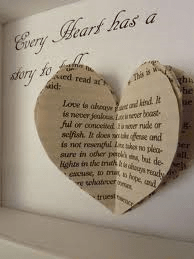 Every Heart has a
story to
said read at
This is w
Love is always patient and kind. It
is never jealous. Love is never boast-
ful or conceited. It is never rude or
selfish. It does not take offense and
is not resentful. Love takes no plea-
sure in other people's sins, but de-
lights in the truth. It is always ready
to excuse, to trust, to hope, and
whatever comes.
truest essence